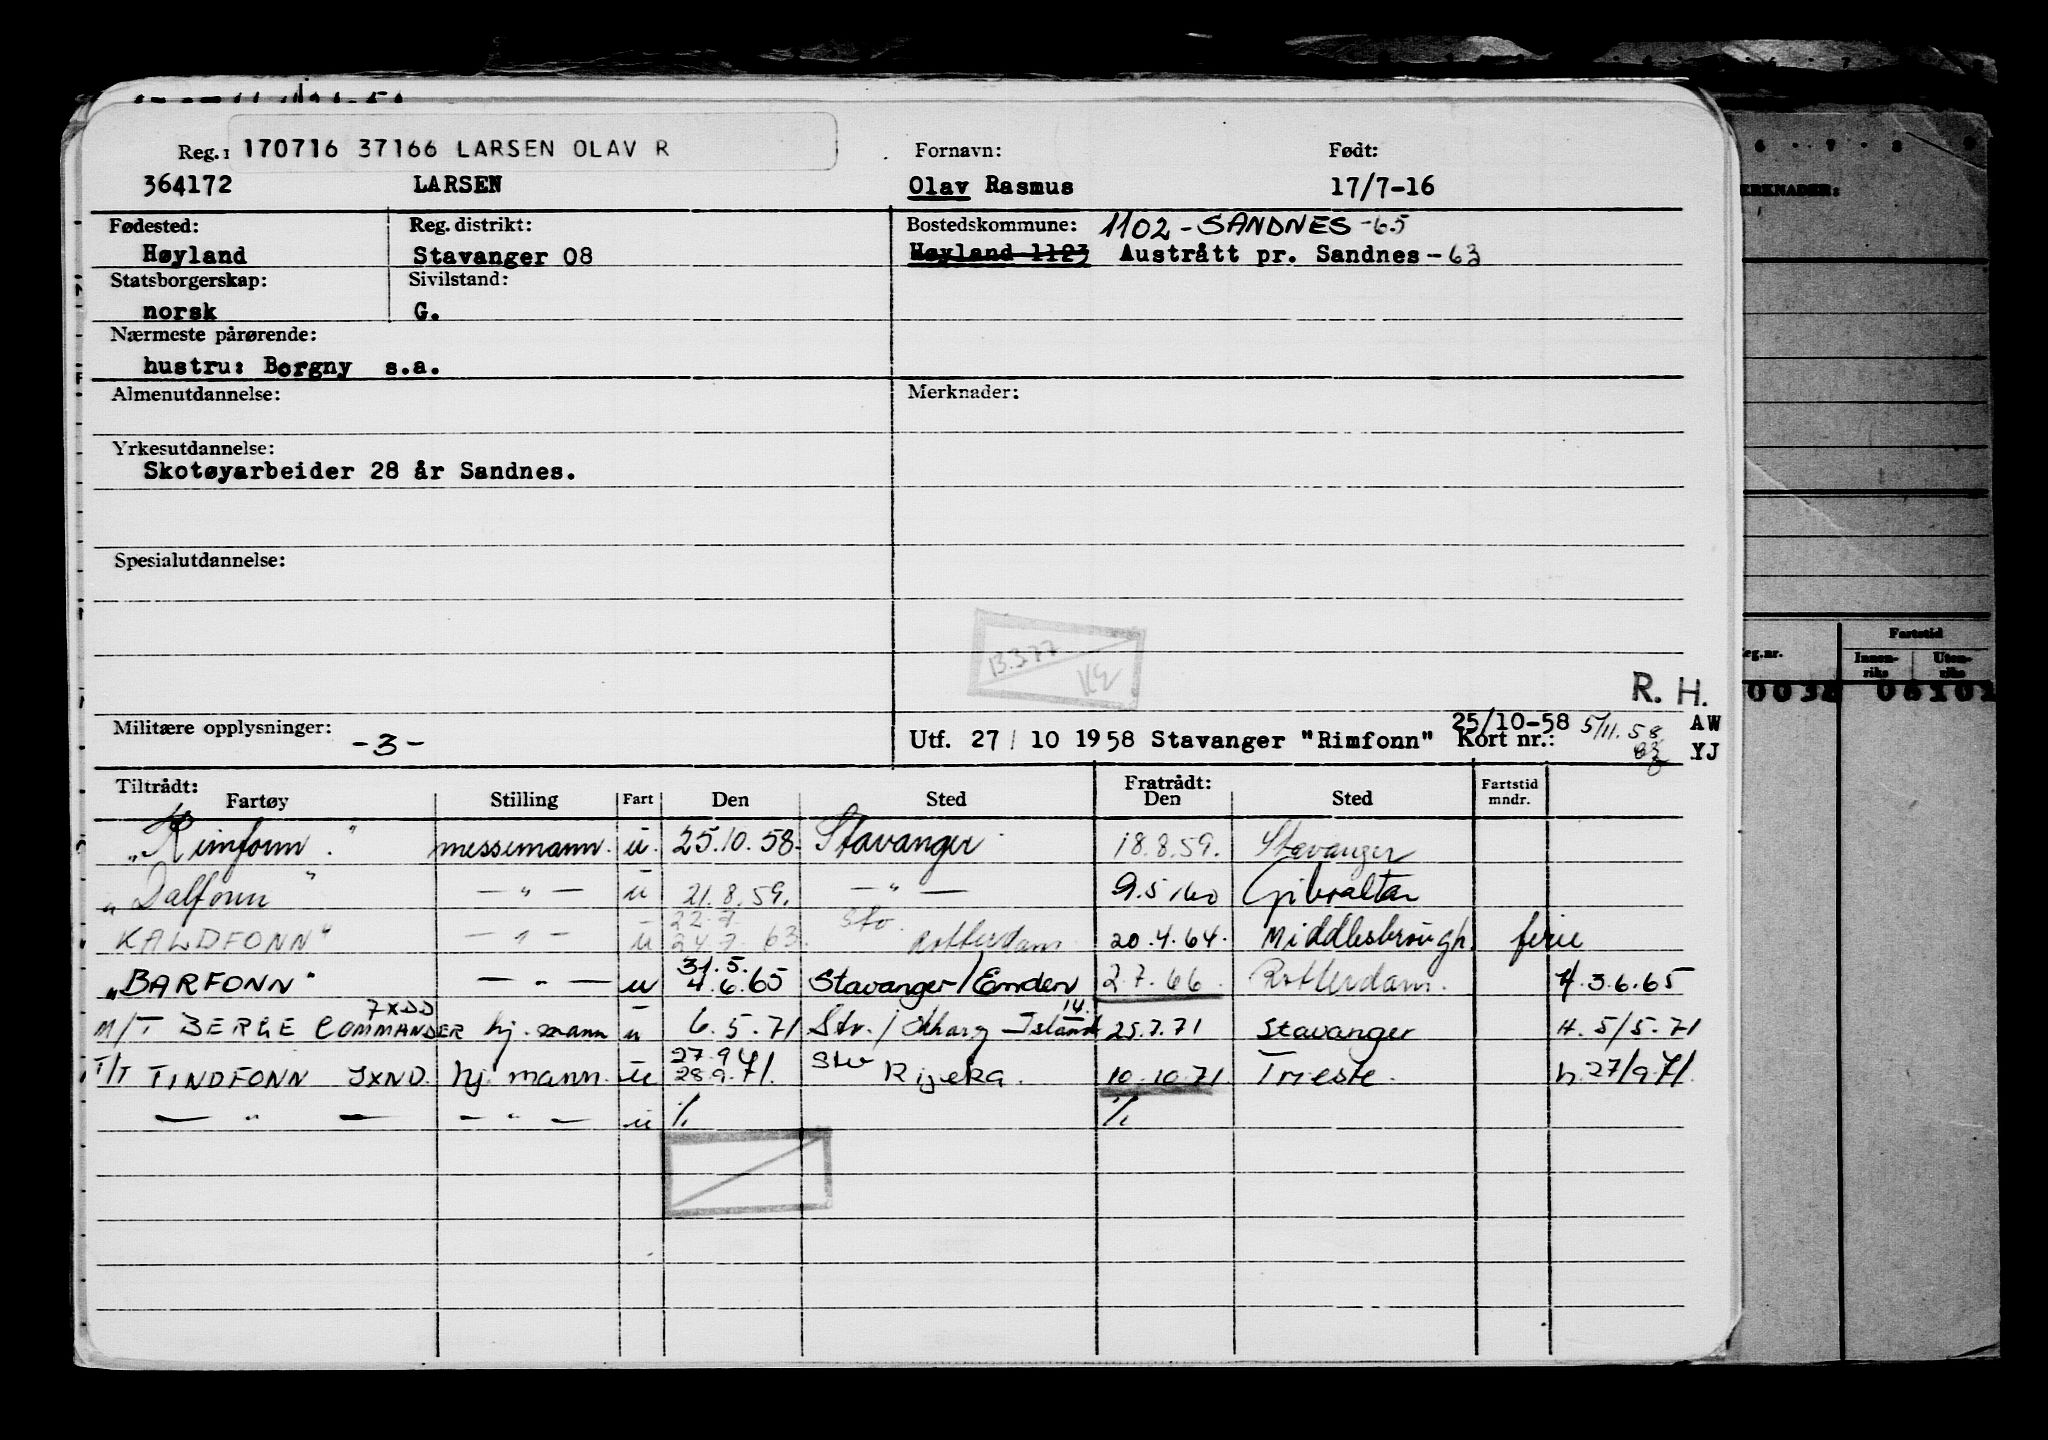 Reg. 170716 37166 LARSEN OLAV R Fornavn: Født:
364172 LARSEN Olav Rasmus 17/7-16
Fødested: Reg. distrikt: Bostedskommune: 1102 - SANDNES -65
Høyland Stavanger 08 Høyland 1123 Austrått pr. Sandnes -63
Statsborgerskap: Sivilstand:
norsk G.
Nærmeste pårørende:
hustru: Borgny s.a.
Almenutdannelse: Merknader:
Yrkesutdannelse:
Skotøyarbeider 28 år Sandnes.
Spesialutdannelse:
B.377
R. H.
Militære opplysninger: -3-
25/10-58 5/11.58 AW
Utf. 27/10 1958 Stavanger "Rimfonn" Kort nr.: YJ
Tiltrådt: Fratrådt: Fartstid
Fartøy Stilling Fart Den Sted Den Sted mndr.
"Rimfonn" messemann. u. 25.10.58. Stavanger 18.8.59. Stavanger
"Dalfonn" — " — u 21.8.59. — " — 9.5.60 Gibraltar
22.7. Stv.
KALDFONN" — " — u 24.7.63. Rotterdam 20.4.64. Middlesbrough. ferie
31.5.
"BARFONN" — " — u 4.6.65 Stavanger/Emden 2.7.66. Rotterdam. H. 3.6.65
7XDD 14.
M/T BERGE COMMANDER hj. mann u 6.5.71 Stv./Kharg Island 25.7.71 Stavanger H. 5/5.71
27.9 Stv
T/T TINDFONN JXND. hj. mann. u 28.9.71. Rijeka. 10.10.71. Trieste. h. 27/9.71.
— " — — " — u ./. ./.
ERKNADER:
eg.nr. Fartstid
Innen-riks Uten-riks